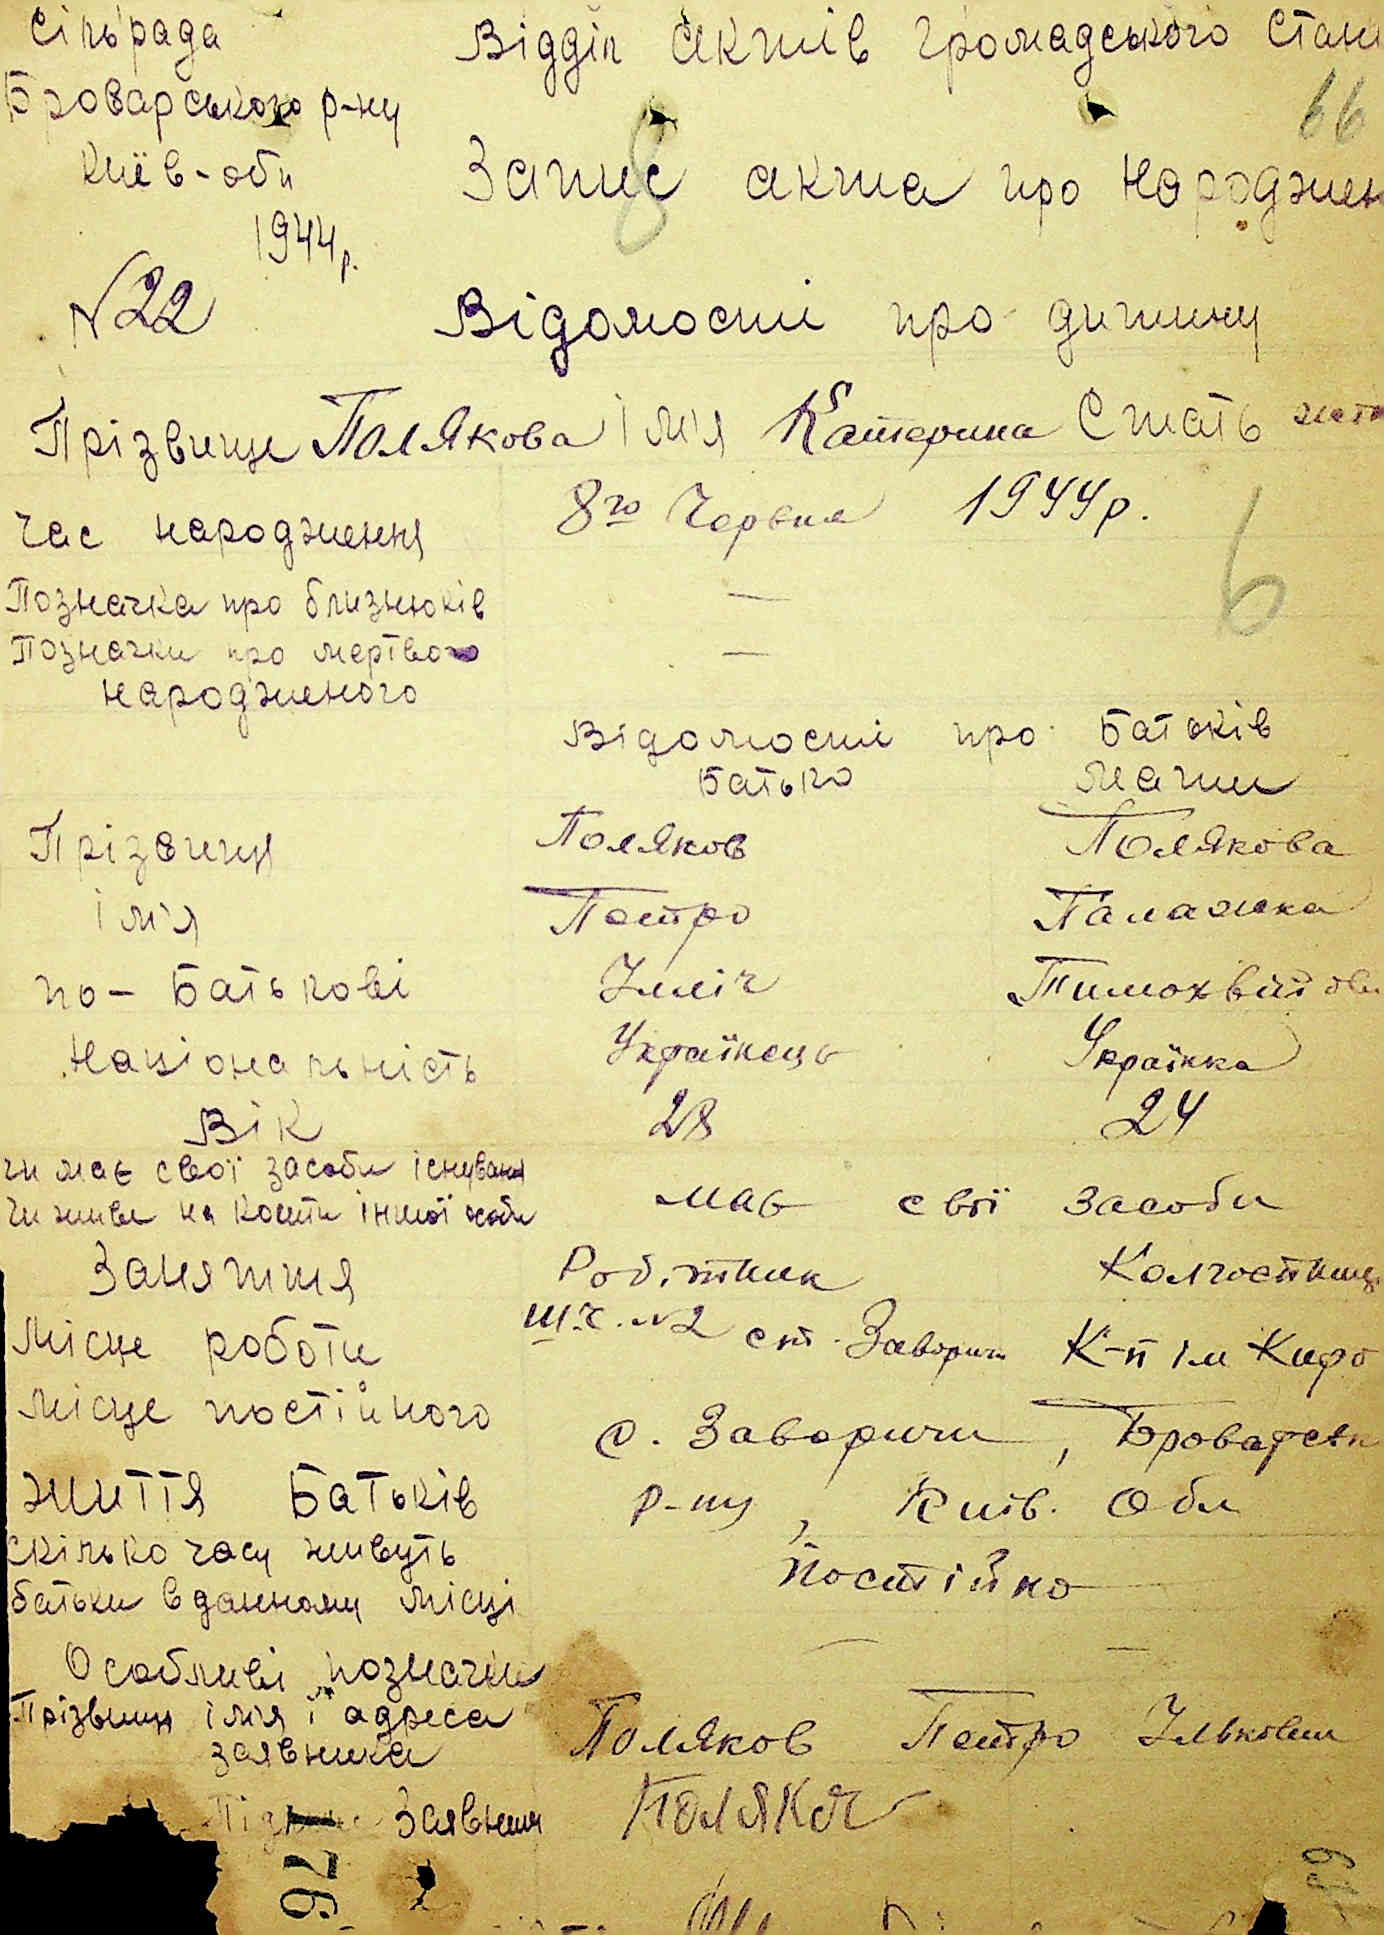 Сільрада Відділ актів громадського стану
Броварського р-ну 66
Київ-обл Запис акта про народжен
1944р. 8
№22 Відомості про дитину
Прізвище Полякова Ім'я Катерина Стать
Час народження 8го Червня 1944р.
6
Позначка про близнюків —
Позначки про мертвого —
народженого
Відомості про Батьків
Батько Мати
Прізвище Поляков Полякова
Ім'я Петро Палажка
по-Батькові Ілліч
Національність Українець Українка
Вік 28 24
чи має свої засоби існування
чи живе на кошти іншої особи має свої засоби
Заняття Робітник Колгоспниц
Місце роботи Ш.Ч. №2 ст. Заворич К-п ім Киро
Місце постійного с. Заворичи, Броварськ
життя Батьків р-ну, Київ. Обл
скілько часу живуть Постійно
батьки в данному місці
Особливі позначки — —
Прізвище ім'я і адреса Поляков Петро Ількович
заявника
Заявника Поляков
92